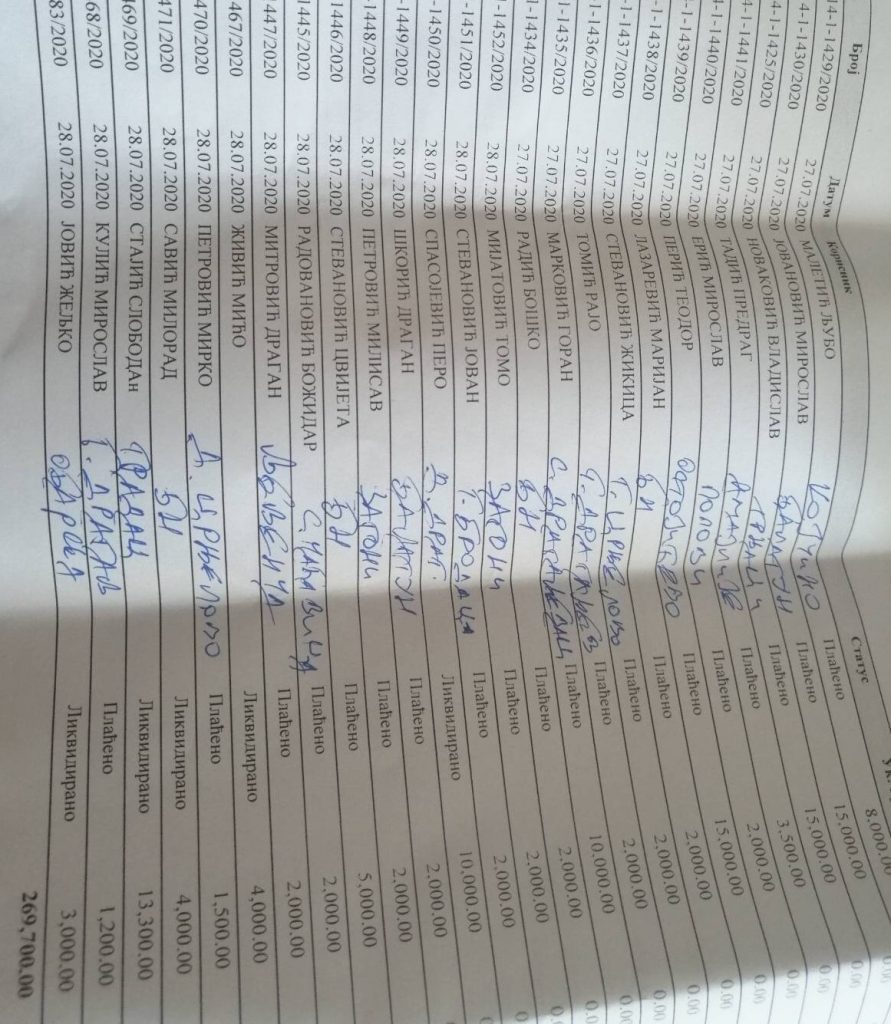 Број Датум Корисник Статус Ук.
14-1-1429/2020 27.07.2020 МАЛЕТИЋ ЉУБО Плаћено 8,000.00
4-1-1430/2020 27.07.2020 ЈОВАНОВИЋ МИРОСЛАВ БАЛАТУН Плаћено 15,000.00 0.00
4-1-1425/2020 27.07.2020 НОВАКОВИЋ ВЛАДИСЛАВ Плаћено 15,000.00 0.00
4-1-1441/2020 27.07.2020 ТАДИЋ ПРЕДРАГ АМАЈЛИЈЕ Плаћено 3,500.00 0.00
4-1-1440/2020 27.07.2020 ЕРИЋ МИРОСЛАВ ПОПОВИ Плаћено 2,000.00 0.00
-1-1439/2020 27.07.2020 ПЕРИЋ ТЕОДОР Плаћено 15,000.00 0.00
-1-1438/2020 27.07.2020 ЛАЗАРЕВИЋ МАРИЈАН БН Плаћено 2,000.00 0.00
-1-1437/2020 27.07.2020 СТЕВАНОВИЋ ЖИКИЦА Г. ЦРЊЕЛОВО Плаћено 2,000.00 0.00
1-1436/2020 27.07.2020 ТОМИЋ РАЈО Плаћено 2,000.00 0.00
1-1435/2020 27.07.2020 МАРКОВИЋ ГОРАН Плаћено 10,000.00 0.0
1-1434/2020 27.07.2020 РАДИЋ БОШКО БН Плаћено 2,000.00 0.
-1452/2020 28.07.2020 МИЈАТОВИЋ ТОМО ЗАГОНИ Плаћено 2,000.00 0
-1451/2020 28.07.2020 СТЕВАНОВИЋ ЈОВАН Г. БРОДАЦ Плаћено 2,000.00
-1450/2020 28.07.2020 СПАСОЈЕВИЋ ПЕРО Д. ДРАГ. Ликвидирано 10,000.00
-1449/2020 28.07.2020 ШКОРИЋ ДРАГАН БАЛАТУН Плаћено 2,000.00
-1448/2020 28.07.2020 ПЕТРОВИЋ МИЛИСАВ ЗАГОНИ Плаћено 2,000.00
1446/2020 28.07.2020 СТЕВАНОВИЋ ЦВИЈЕТА БН Плаћено 5,000.00
1445/2020 28.07.2020 РАДОВАНОВИЋ БОЖИДАР Плаћено 2,000.00
1447/2020 28.07.2020 МИТРОВИЋ ДРАГАН Плаћено 2,000.00
467/2020 28.07.2020 ЖИВИЋ МИЋО Ликвидирано 4,000.00
470/2020 28.07.2020 ПЕТРОВИЋ МИРКО Д. ЦРЊЕЛОВО Плаћено 1,500.00
471/2020 28.07.2020 САВИЋ МИЛОРАД БН Ликвидирано 4,000.00
469/2020 28.07.2020 СТАЈИЋ СЛОБОДАн Ликвидирано 13,300.00
68/2020 28.07.2020 КУЛИЋ МИРОСЛАВ Плаћено 1,200.00
83/2020 28.07.2020 ЈОВИЋ ЖЕЉКО ОБАРСКА Ликвидирано 3,000.00
269,700.00